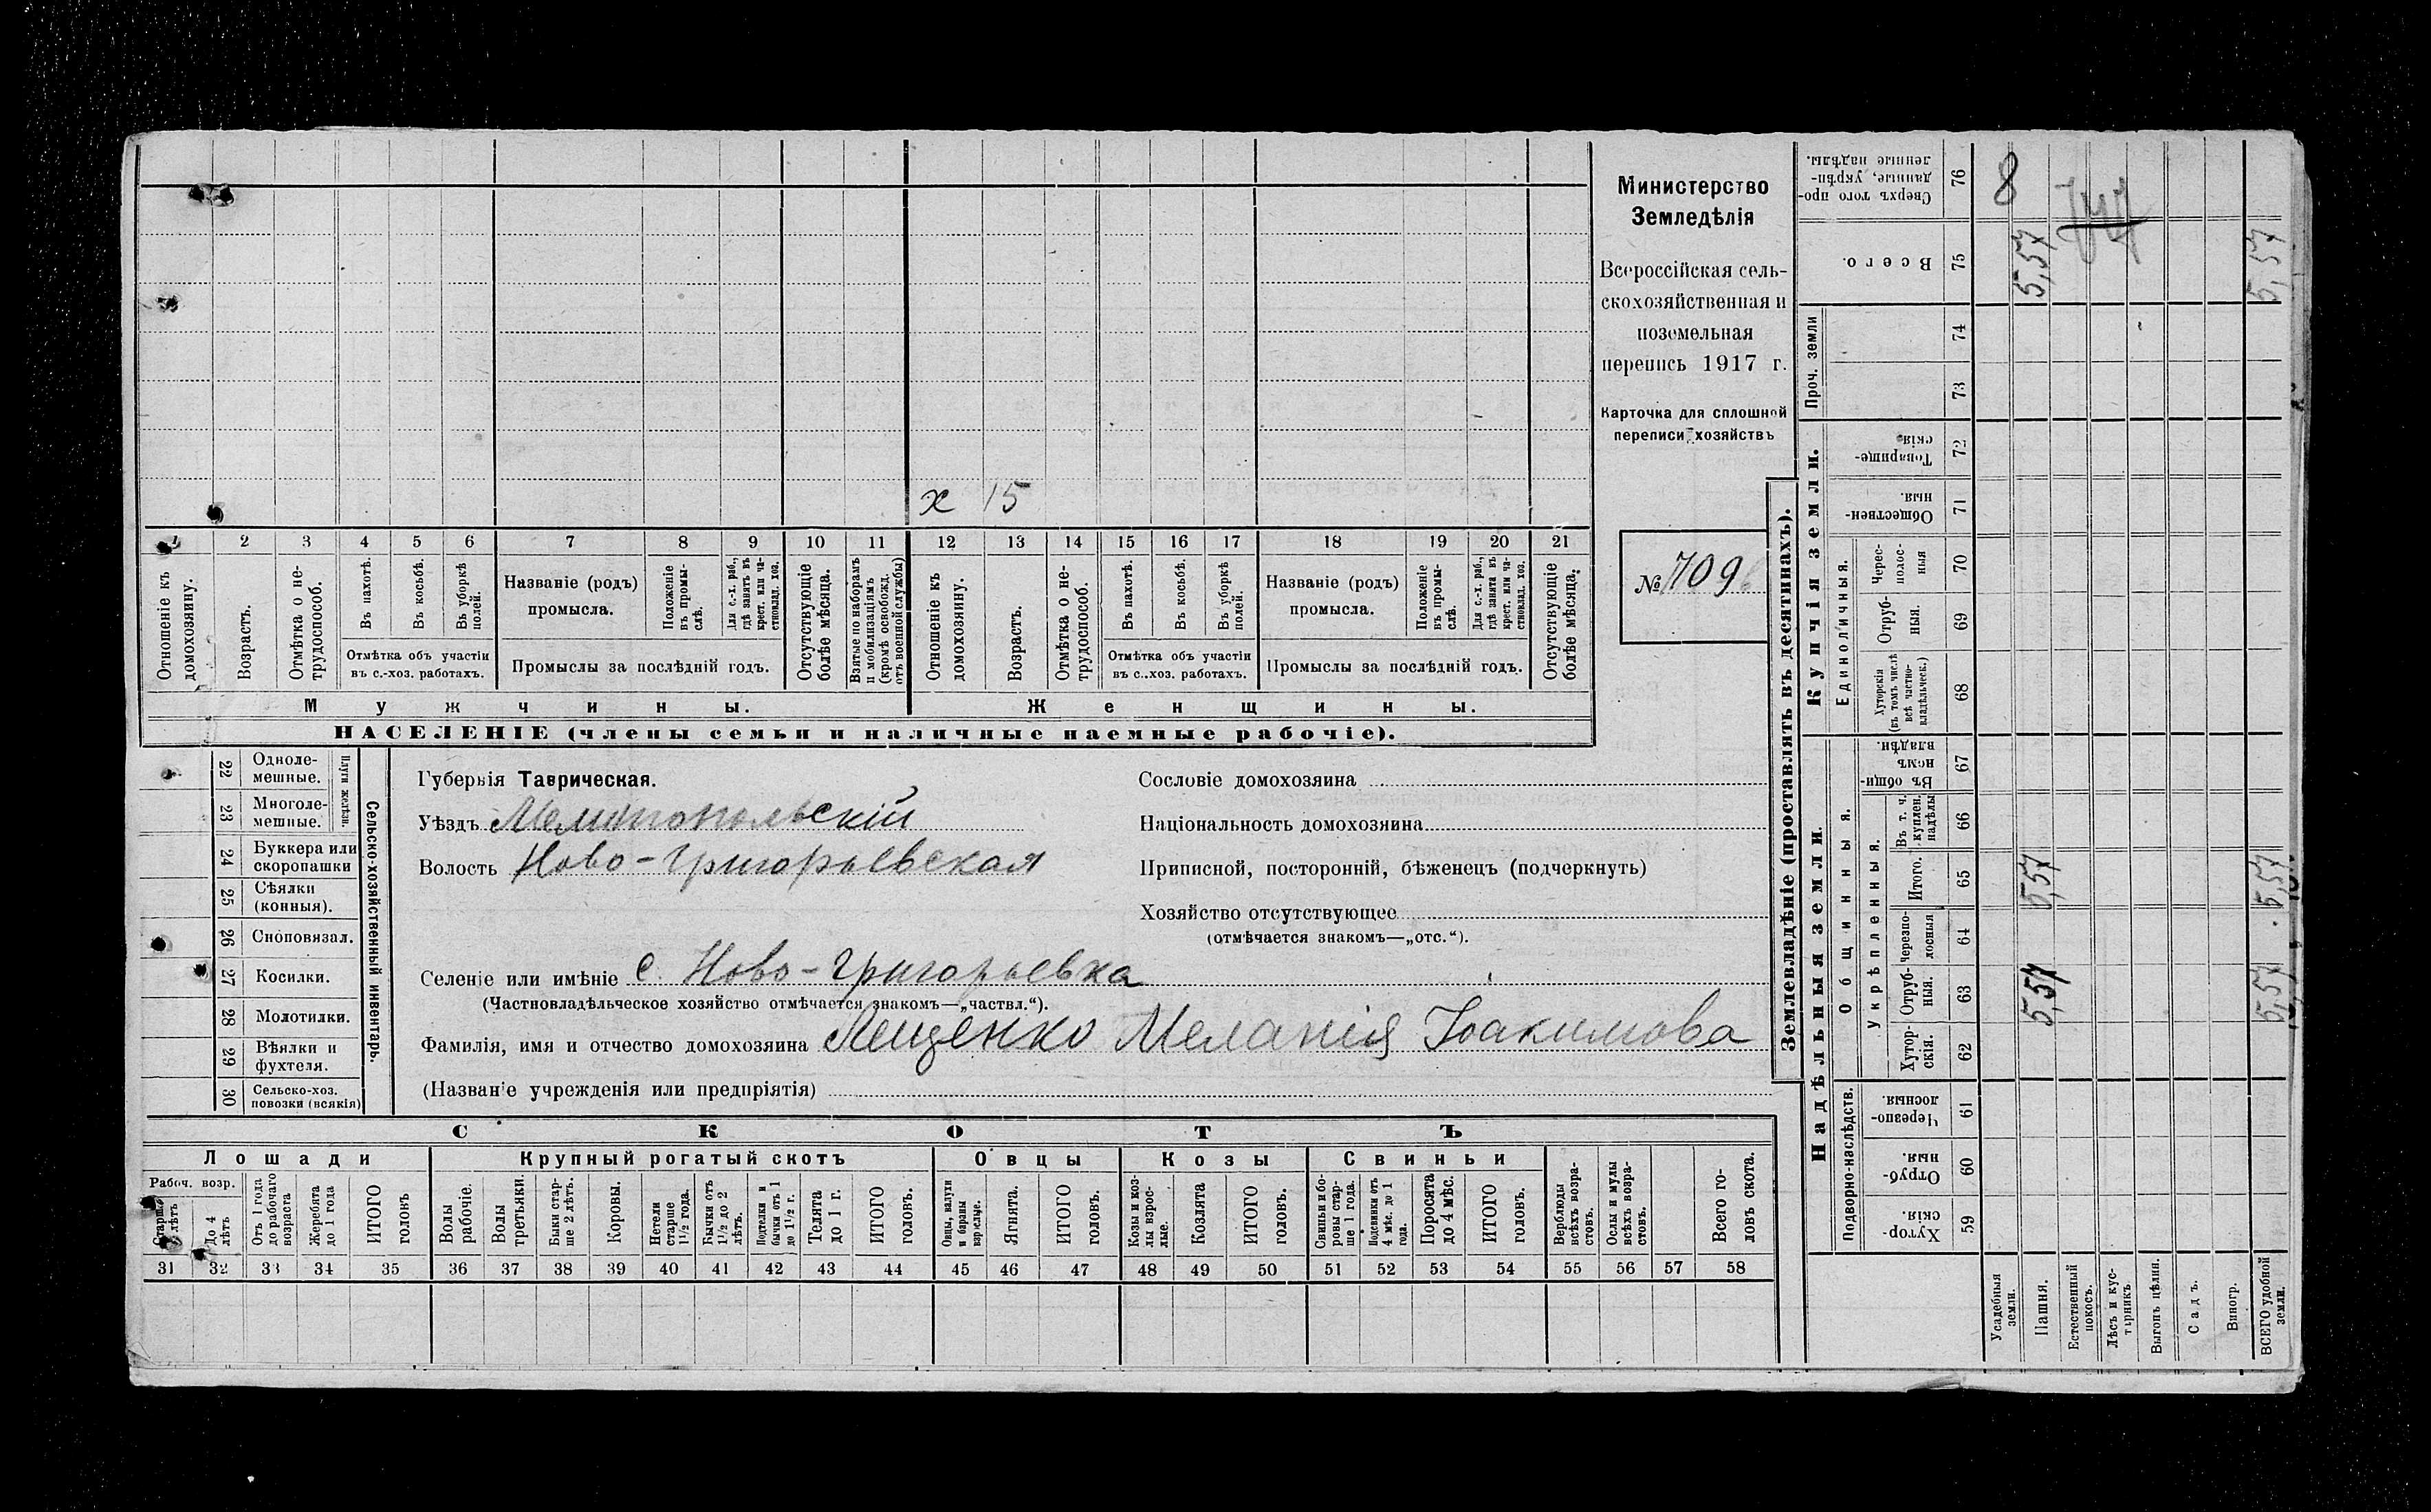 х 15
1 2 3 4 5 6 7 8 9 10 11 12 13 14 15 16 17 18 19 20 21
Отношеніе къ домохозяину.
Возрастъ.
Отмѣтка о не-
трудоспособ.
Въ пахотѣ.
Въ косьбѣ.
Въ уборкѣ полей.
Отмѣтка объ участіи
въ с.-хоз. работахъ.
Названіе (родъ)
промысла.
Положеніе
въ промы-
слѣ.
Для с.-х. раб.,
гдѣ занятъ въ
крест. или ча-
стновлад. хоз.
Промыслы за послѣдній годъ.
Отсутствующіе
болѣе мѣсяца.
Взятые по наборамъ
и мобилизаціямъ
(кромѣ освобожд.
отъ военной службы)
Отношеніе къ
домохозяину.
Возрастъ.
Отмѣтка о не-
трудоспособ.
Въ пахотѣ.
Въ косьбѣ.
Въ уборкѣ
полей.
Отмѣтка объ участіи
въ с.-хоз. работахъ.
Названіе (родъ)
промысла.
Положеніе
въ промы-
слѣ.
Для с.-х. раб.,
гдѣ занята въ
крест. или ча-
стновлад. хоз.
Промыслы за послѣдній годъ.
Отсутствующіе
болѣе мѣсяца.
Мужчины.
Женщины.
НАСЕЛЕНІЕ (члены семьи и наличные наемные рабочіе).
Министерство
Земледѣлія
Всероссійская сель-
скохозяйственная и
поземельная
перепись 1917 г.
Карточка для сплошной
переписи хозяйствъ
№ 709
22 Одноле-
мешные.
23 Многоле-
мешные.
Плуги желѣзн.
24 Буккера или
скоропашки
25 Сѣялки
(конныя).
26 Сноповязал.
27 Косилки.
28 Молотилки.
29 Вѣялки и
фухтеля.
30 Сельско-хоз.
повозки (всякія)
Сельско-хозяйственный инвентарь.
Губернія Таврическая.
Уѣздъ Мелитопольскій
Волость Ново-Григорьевская
Селеніе или имѣніе с. Ново-Григорьевка
(Частновладѣльческое хозяйство отмѣчается знакомъ—„частвл.“).
Фамилія, имя и отчество домохозяина Лещенко Меланія Іоакимова
(Названіе учрежденія или предпріятія)
Сословіе домохозяина
Національность домохозяина
Приписной, посторонній, бѣженецъ (подчеркнуть)
Хозяйство отсутствующее
(отмѣчается знакомъ—„отс.“).
СКОТЪ
Лошади
Крупный рогатый скотъ
Овцы
Козы
Свиньи
Рабоч. возр.
Старше
лѣтъ
До 4
лѣтъ
Отъ 1 года
до рабочаго
возраста
Жеребята
до 1 года
ИТОГО
головъ
Волы
рабочіе.
Волы
третьяки.
Быки стар-
ше 2 лѣтъ.
Коровы.
Нетели
старше
1½ года.
Бычки отъ
1½ до 2
лѣтъ.
Подтелки и
бычки отъ 1
до 1½ г.
Телята
до 1 г.
ИТОГО
головъ.
Овцы, валухи
и бараны
взрослые.
Ягнята.
ИТОГО
головъ.
Козы и коз-
лы взрос-
лые.
Козлята
ИТОГО
головъ.
Свиньи и бо-
ровы стар-
ше 1 года.
Подсвинки отъ
4 мѣс. до 1
года.
Поросята
до 4 мѣс.
ИТОГО
головъ.
Верблюды
всѣхъ возра-
стовъ.
Ослы и мулы
всѣхъ возра-
стовъ.
Всего го-
ловъ скота.
31 32 33 34 35 36 37 38 39 40 41 42 43 44 45 46 47 48 49 50 51 52 53 54 55 56 57 58
Землевладѣніе (проставлять въ десятинахъ).
Надѣльныя земли.
Купчія земли.
Проч. земли
Подворно-наслѣдств.
Общинныя.
Укрѣпленныя.
Единоличныя.
Сверхъ того про-
данные, укрѣп-
ленные надѣлы.
76
8
Всего.
75
5,57
5,57
74
73
Товарище-
скія
72
Обществен-
ныя.
71
Черес-
полос-
ныя
70
Отруб-
ныя.
69
Хуторскія
(въ томъ числѣ
всѣ частно-
владѣльческ.)
68
Въ общи-
номъ
владѣн.
67
Въ т. ч.
куплен.
надѣлы
66
Итого.
65
5,57
5,57
Черезпо-
лосныя
64
Отруб-
ныя.
63
5,57
5,57
Хутор-
скія.
62
Черезпо-
лосныя.
61
Отруб-
ныя.
60
Хутор-
скія.
59
Усадебныя
земли.
Пашня.
Естественный
покосъ.
Лѣсъ и кус-
тарникъ.
Выгонъ цѣлин.
Садъ.
Виногр.
ВСЕГО удобной
земли.